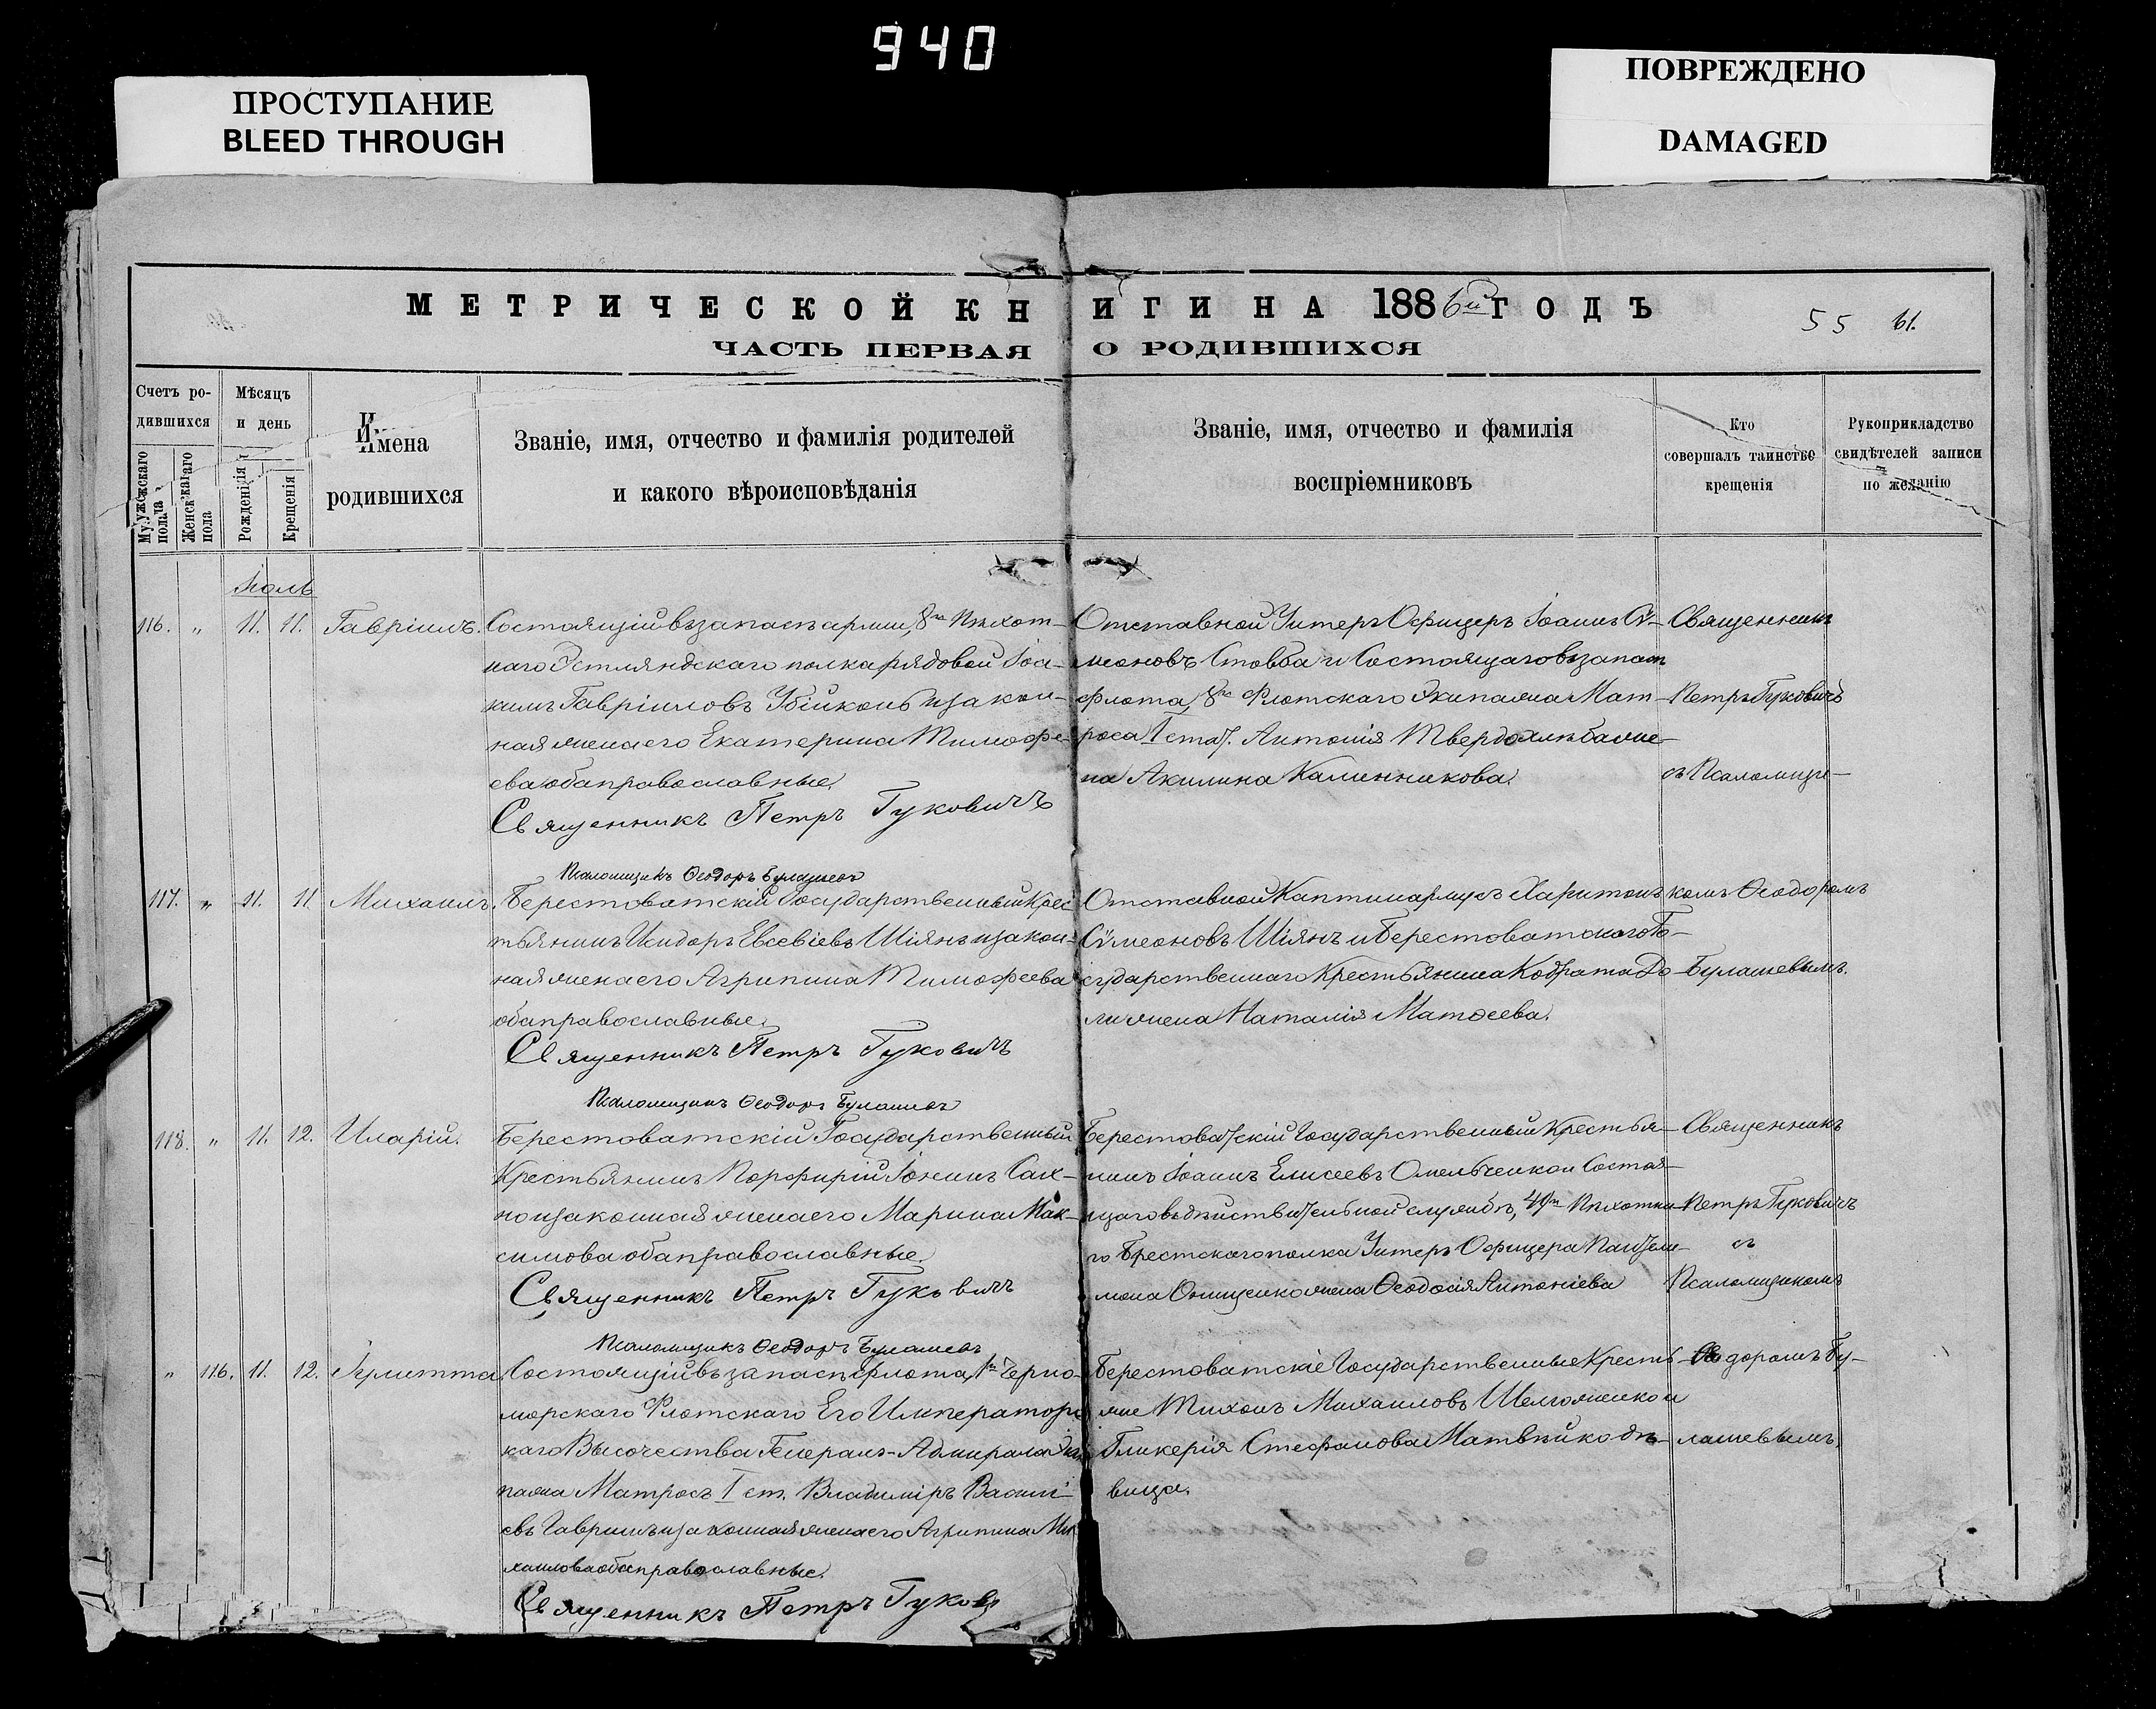 940
ПРОСТУПАНИЕ
BLEED THROUGH
ПОВРЕЖДЕНО
DAMAGED
МЕТРИЧЕСКОЙ КНИГИ НА 1886й ГОДЪ
55 61.
ЧАСТЬ ПЕРВАЯ О РОДИВШИХСЯ
Счетъ родившихся
Мужскаго пола
Женскаго пола
Мѣсяцъ и день
Рожденія
Крещенія
Имена
родившихся
Званіе, имя, отчество и фамилія родителей
и какого вѣроисповѣданія
Званіе, имя, отчество и фамилія
воспріемниковъ
Кто
совершалъ таинство
крещенія
Рукоприкладство
свидѣтелей записи
по желанію
Іюль
116. „ 11. 11. Гавріилъ.
Состоящій въ запасѣ арміи, 8го Пѣхот-
наго Эстляндскаго полка рядовой Іоа-
кимъ Гавріиловъ Убійконь и закон-
ная жена его Екатерина Тимофе-
ева оба православные.
Священникъ Петръ Гуковичъ
Псаломщикъ Ѳеодоръ Булашевъ
Отставной Унтеръ Офицеръ Іоаннъ Сѵ-
меоновъ Стовба и Состоящаго въ запасѣ
флота, 8го Флотскаго Экипажа Мат-
роса I стат. Антонія Твердохлѣба же-
на Акилина Калинникова.
Священникъ
Петръ Гуковичъ
съ Псаломщи-
117. „ 11. 11 Михаилъ.
Берестоватскій Государственный Крес-
тьянинъ Исидоръ Евсевіевъ Шіянъ и закон-
ная жена его Агрипина Тимофеева
оба православные.
Священникъ Петръ Гуковичъ
Псаломщикъ Ѳеодоръ Булашевъ
Отставной Каптинармусъ Харитонъ
Сѵмеоновъ Шіянъ и Берестоватскаго Го-
сударственнаго Крестьянина Кодрата До-
ли жена Наталія Матѳеева.
комъ Ѳеодоромъ
Булашевымъ.
118. „ 11. 12. Иларій.
Берестоватскій Государственный
Крестьянинъ Порфирій Іонинъ Сах-
но и законная жена его Марина Мак-
симова оба православные.
Священникъ Петръ Гуковичъ
Псаломщикъ Ѳеодоръ Булашевъ
Берестоватскій Государственный Крестья-
нинъ Іоаннъ Елисеевъ Омельченко и Состоя-
щаго въ дѣйствительной службѣ, 49го Пѣхотна-
го Брестскаго полка Унтеръ Офицера Пантели-
мона Онищенко жена Ѳеодосія Антоніева
Священникъ
Петръ Гуковичъ
съ
Псаломщикомъ
„ 116. 11. 12. Іулитта
Состоящій въ запасѣ флота, 1го Черно-
морскаго Флотскаго Его Императорс-
каго Высочества Генералъ-Адмирала Эки-
пажа Матросъ I ст. Владиміръ Васильі-
евъ Гаврилъ и законная жена его Агрипина Ми-
хаилова оба православные.
Священникъ Петръ Гукович
Берестоватскіе Государственные Кресть-
яне Тихонъ Михаиловъ Шелюженко и
Гликерія Стефанова Матвѣйко дѣ-
вица.
Ѳеодоромъ Бу-
лашевымъ.